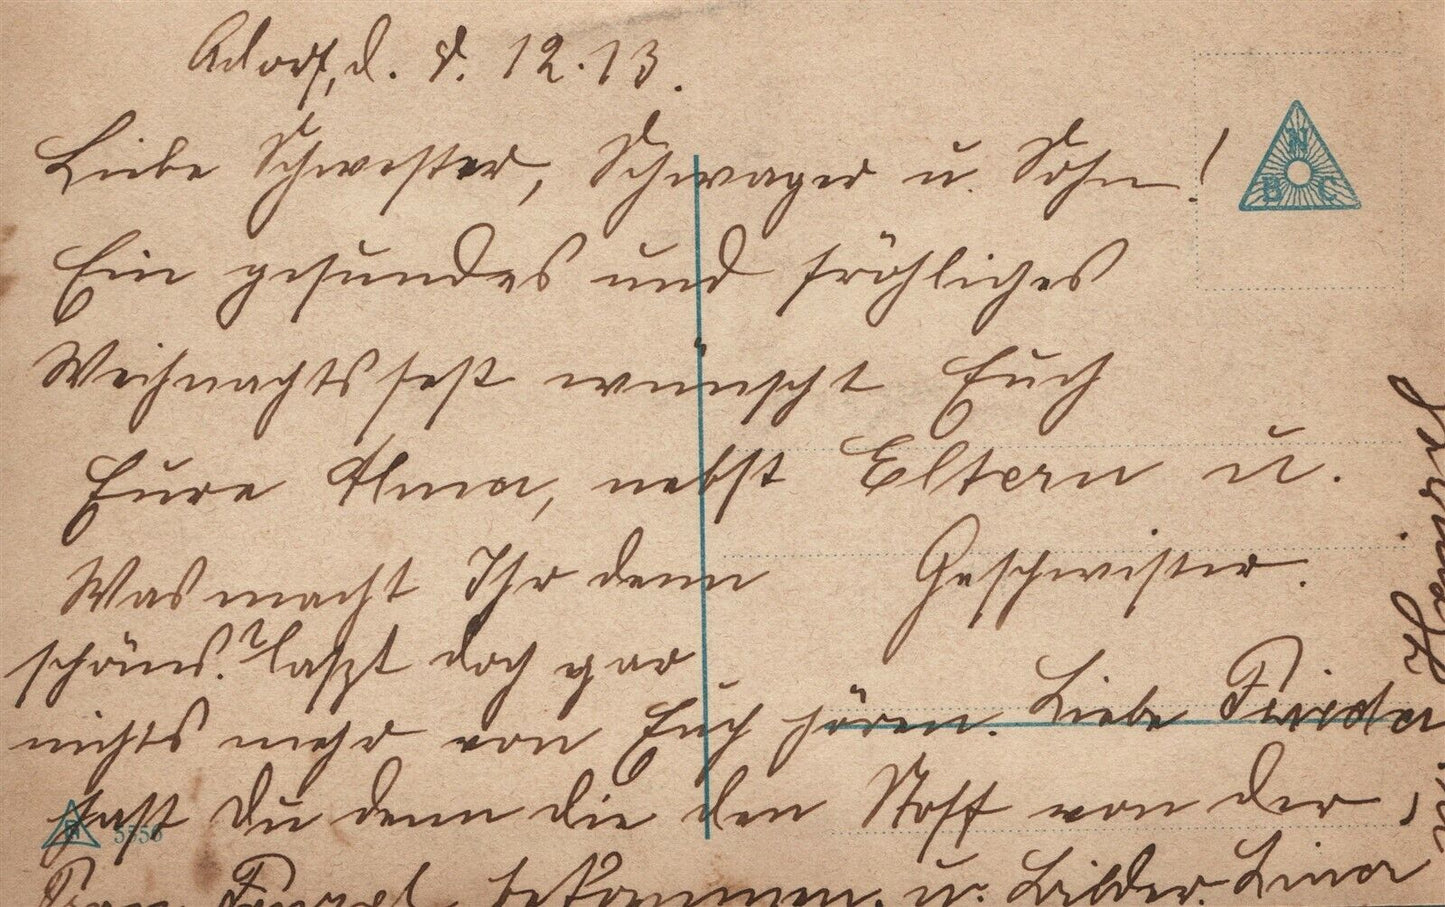 Adorf, d. 8. 12. 13.
Liebe Schwester, Schwager u. Sohn!
Ein gesundes und fröhliches
Weihnachtsfest wünscht Euch
Eure Alma, nebst Eltern u.
Geschwister.
Was macht Ihr denn
schöns? laszt doch gar
nichts mehr von Euch hören. Liebe Frieda
hast du denn die den Stoff von der
Frau bekommen. u. Bilder. Lina
N
B C
5556